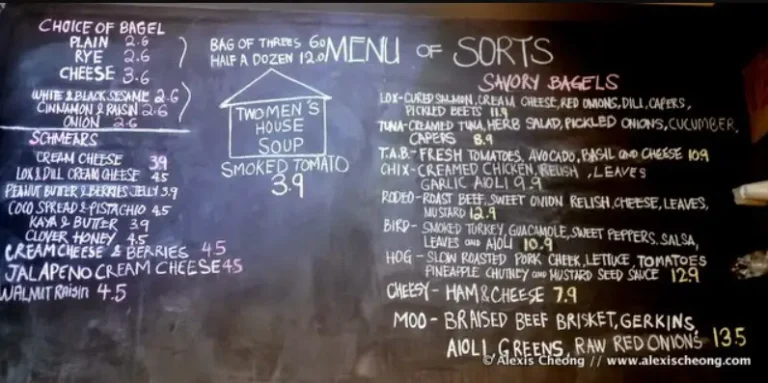 CHOICE OF BAGEL
PLAIN 2.6
RYE 2.6
CHEESE 3.6
WHITE & BLACK SESAME 2.6
CINNAMON & RAISIN 2.6
ONION 2.6
SCHMEARS
CREAM CHEESE 39
LOX & DILL CREAM CHEESE 45
PEANUT BUTTER & BERRIES JELLY 3.9
COCO SPREAD & PISTACHIO 4.5
KAYA & BUTTER 3.9
CLOVER HONEY 4.5
CREAM CHEESE & BERRIES 4.5
JALAPENO CREAM CHEESE 45
WALNUT RAISIN 4.5
BAG OF THREES 6.0
HALF A DOZEN 12.0
MENU OF SORTS
TWO MEN'S
HOUSE
SOUP
SMOKED TOMATO
3.9
SAVORY BAGELS
LOX-CURED SALMON, CREAM CHEESE, RED ONIONS, DILL, CAPERS,
PICKLED BEETS 11.9
TUNA-CREAMED TUNA, HERB SALAD, PICKLED ONIONS, CUCUMBER,
CAPERS 8.9
T.A.B.-FRESH TOMATOES, AVOCADO, BASIL AND CHEESE 109
CHIX-CREAMED CHICKEN, RELISH, LEAVES
GARLIC AIOLI 9.9
RODEO-ROAST BEEF, SWEET ONION RELISH, CHEESE, LEAVES,
MUSTARD 12.9
BIRD- SMOKED TURKEY, GUACAMOLE, SWEET PEPPERS, SALSA,
LEAVES AND AIOLI 10.9
HOG - SLOW ROASTED PORK CHEEK, LETTUCE, TOMATOES
PINEAPPLE CHUTNEY AND MUSTARD SEED SAUCE 12.9
CHEESY- HAM & CHEESE 7.9
MOO - BRAISED BEEF BRISKET, GERKINS,
AIOLI, GREENS, RAW RED ONIONS 13.5
© Alexis Cheong // www.alexischeong.com